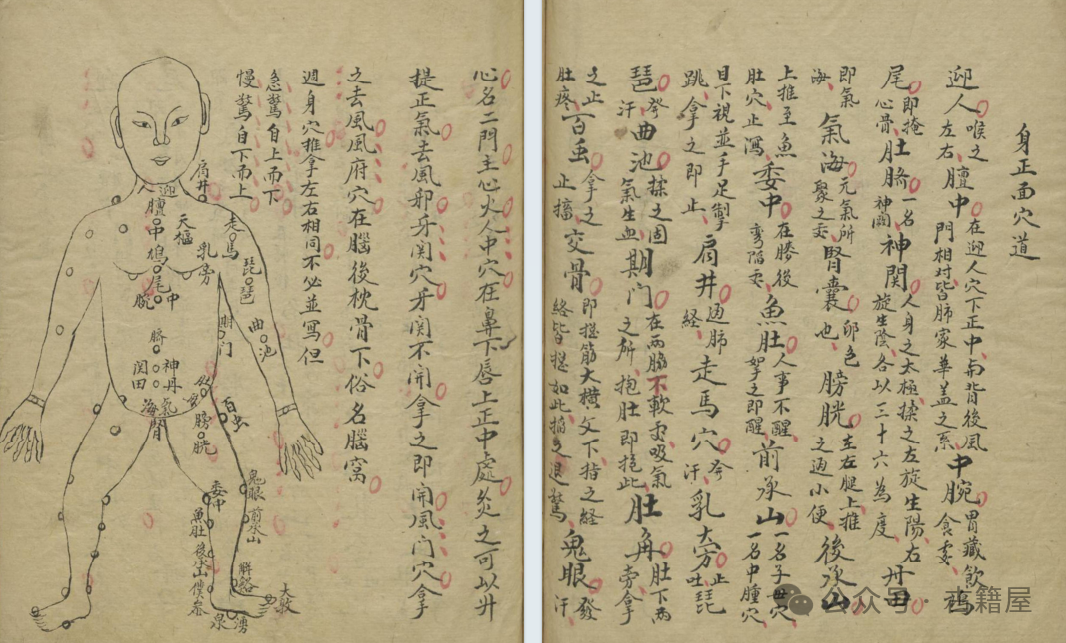 身正面穴道
迎人 喉之左右 膻中 在迎人穴下正中南背後風門相對皆肺家華盖之系 中腕 胃藏飲食處 鳩
尾 即掩心骨 肚臍 一名神闕 神関 人身之太極揉之左旋生陽右旋生陰各以三十六為度 丹田
即氣海 氣海 元氣所聚之處 腎囊 卵包也 膀胱 左右腿上推之通小便 後承山
上推至魚肚穴止瀉 委中 在膝後彎陷處 魚肚 人事不醒拏之即醒 前承山 一名子母穴一名中臁穴
目下視並手足掣跳拿之即止 肩井 通肺經 走馬穴 發汗 乳大旁 止吐 琵
琶 發汗 曲池 揉之固氣生血 期门 在两脇不軟處吸氣之所抱肚即抱此 肚角 肚下两旁拿
之止肚疼 百虫 拿之止搐 交骨 即搓筋大横父下指之經絡皆搓如此搯之退驚 鬼眼 發汗
心名二門主心火人中穴在鼻下唇上正中處灸之可以升
提正氣去風邪牙関穴牙関不開拿之即開風门穴拿
之去風風府穴在腦後枕骨下俗名腦窩
週身穴推拿左右相同不必並寫但
急驚自上而下
慢驚自下而上
肩井
人迎
膻中
天樞
走馬
乳旁
琵琶
鳩尾
中腕
期门
曲池
臍
神
関
丹田
氣海
腎
膀胱
百虫
鬼眼
委中
前承山
魚肚
後承山
僕参
解谿
大敦
湧泉
公众号
籍屋